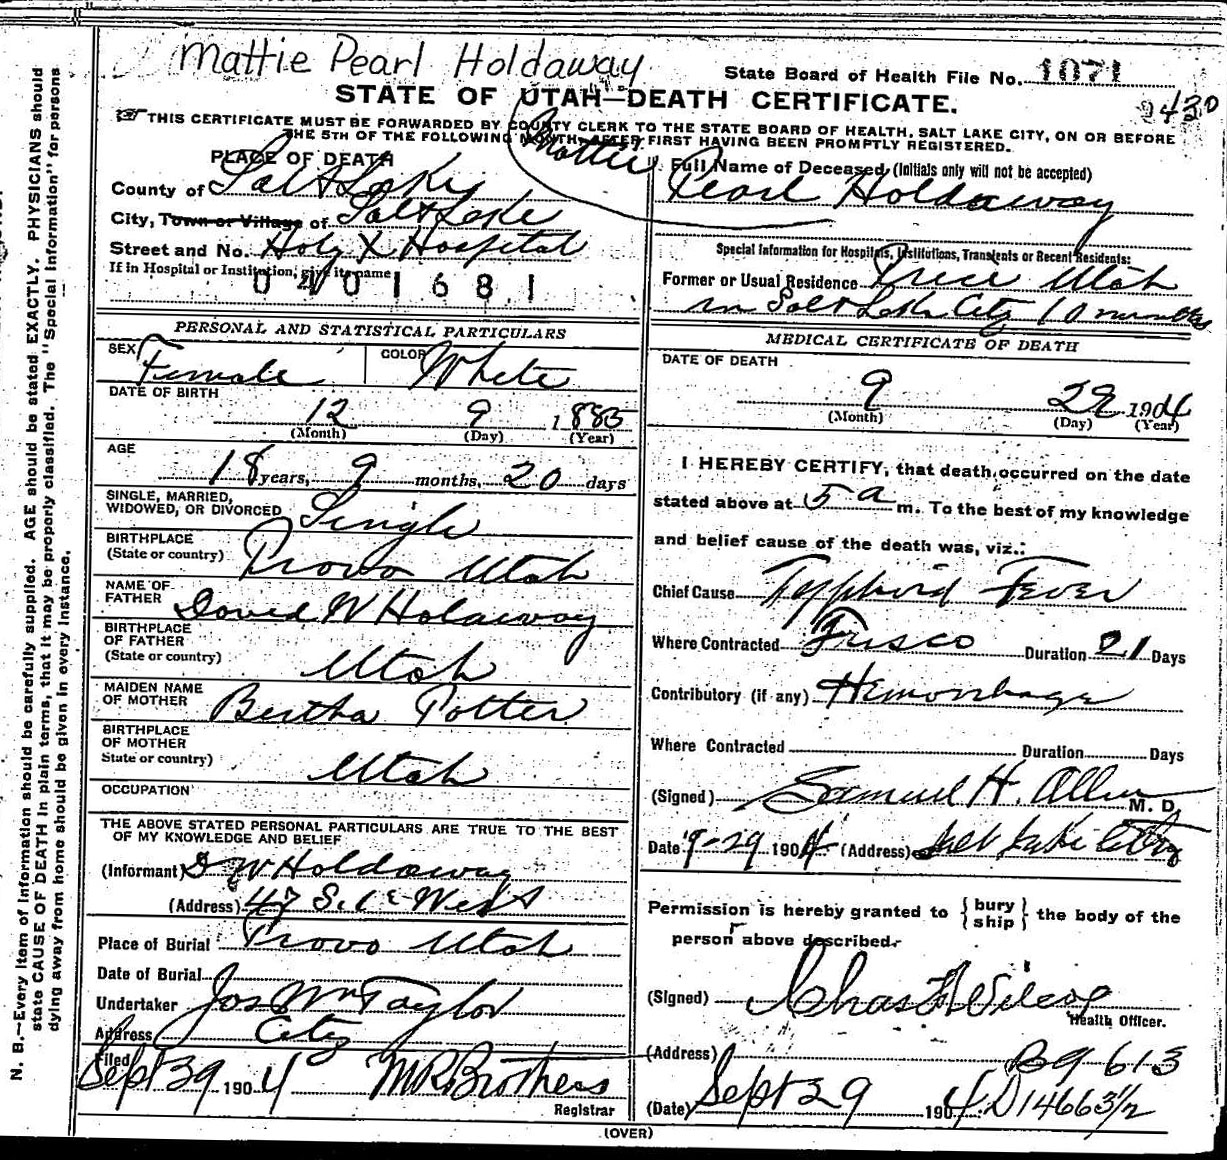 Mattie Pearl Holdaway
State Board of Health File No. 1071
STATE OF UTAH—DEATH CERTIFICATE.
430
☞ THIS CERTIFICATE MUST BE FORWARDED BY COUNTY CLERK TO THE STATE BOARD OF HEALTH, SALT LAKE CITY, ON OR BEFORE
THE 5TH OF THE FOLLOWING MONTH, AFTER FIRST HAVING BEEN PROMPTLY REGISTERED.
PLACE OF DEATH
County of Salt Lake
City, Town or Village of Salt Lake
Street and No. Holy X Hospital
If in Hospital or Institution, give its name
0401681
Mattie
Full Name of Deceased (Initials only will not be accepted)
Pearl Holdaway
Special Information for Hospitals, Institutions, Transients or Recent Residents:
Former or Usual Residence Price Utah
in Salt Lake City 10 minutes
PERSONAL AND STATISTICAL PARTICULARS
SEX Female COLOR White
DATE OF BIRTH
12 9 1885
(Month) (Day) (Year)
AGE
18 years, 9 months, 20 days
SINGLE, MARRIED,
WIDOWED, OR DIVORCED Single
BIRTHPLACE
(State or country) Provo Utah
NAME OF
FATHER David W Holdaway
BIRTHPLACE
OF FATHER
(State or country) Utah
MAIDEN NAME
OF MOTHER Bertha Potter
BIRTHPLACE
OF MOTHER
State or country) Utah
OCCUPATION
THE ABOVE STATED PERSONAL PARTICULARS ARE TRUE TO THE BEST
OF MY KNOWLEDGE AND BELIEF
(Informant) D W Holdaway
(Address) 47 S. West
Place of Burial Provo Utah
Date of Burial
Undertaker Jos Wm Taylor
Address City
Filed Sept 39 1904 M R Brothers
Registrar
MEDICAL CERTIFICATE OF DEATH
DATE OF DEATH
9 29 1904
(Month) (Day) (Year)
I HEREBY CERTIFY, that death occurred on the date
stated above at 5 a m. To the best of my knowledge
and belief cause of the death was, viz.:
Chief Cause Typhoid Fever
Where Contracted Frisco Duration 21 Days
Contributory (if any) Hemorrhage
Where Contracted Duration Days
(Signed) Samuel H. Allen M. D.
Date 9-29 1904 (Address) Salt Lake City
Permission is hereby granted to {bury
ship} the body of the
person above described.
(Signed) Chas F Wilcox
Health Officer.
(Address) B9 613
(Date) Sept 29 1904 D14663½
(OVER)
N. B.—Every item of information should be carefully supplied. AGE should be stated EXACTLY. PHYSICIANS should
state CAUSE OF DEATH in plain terms, that it may be properly classified. The "Special Information" for persons
dying away from home should be given in every instance.